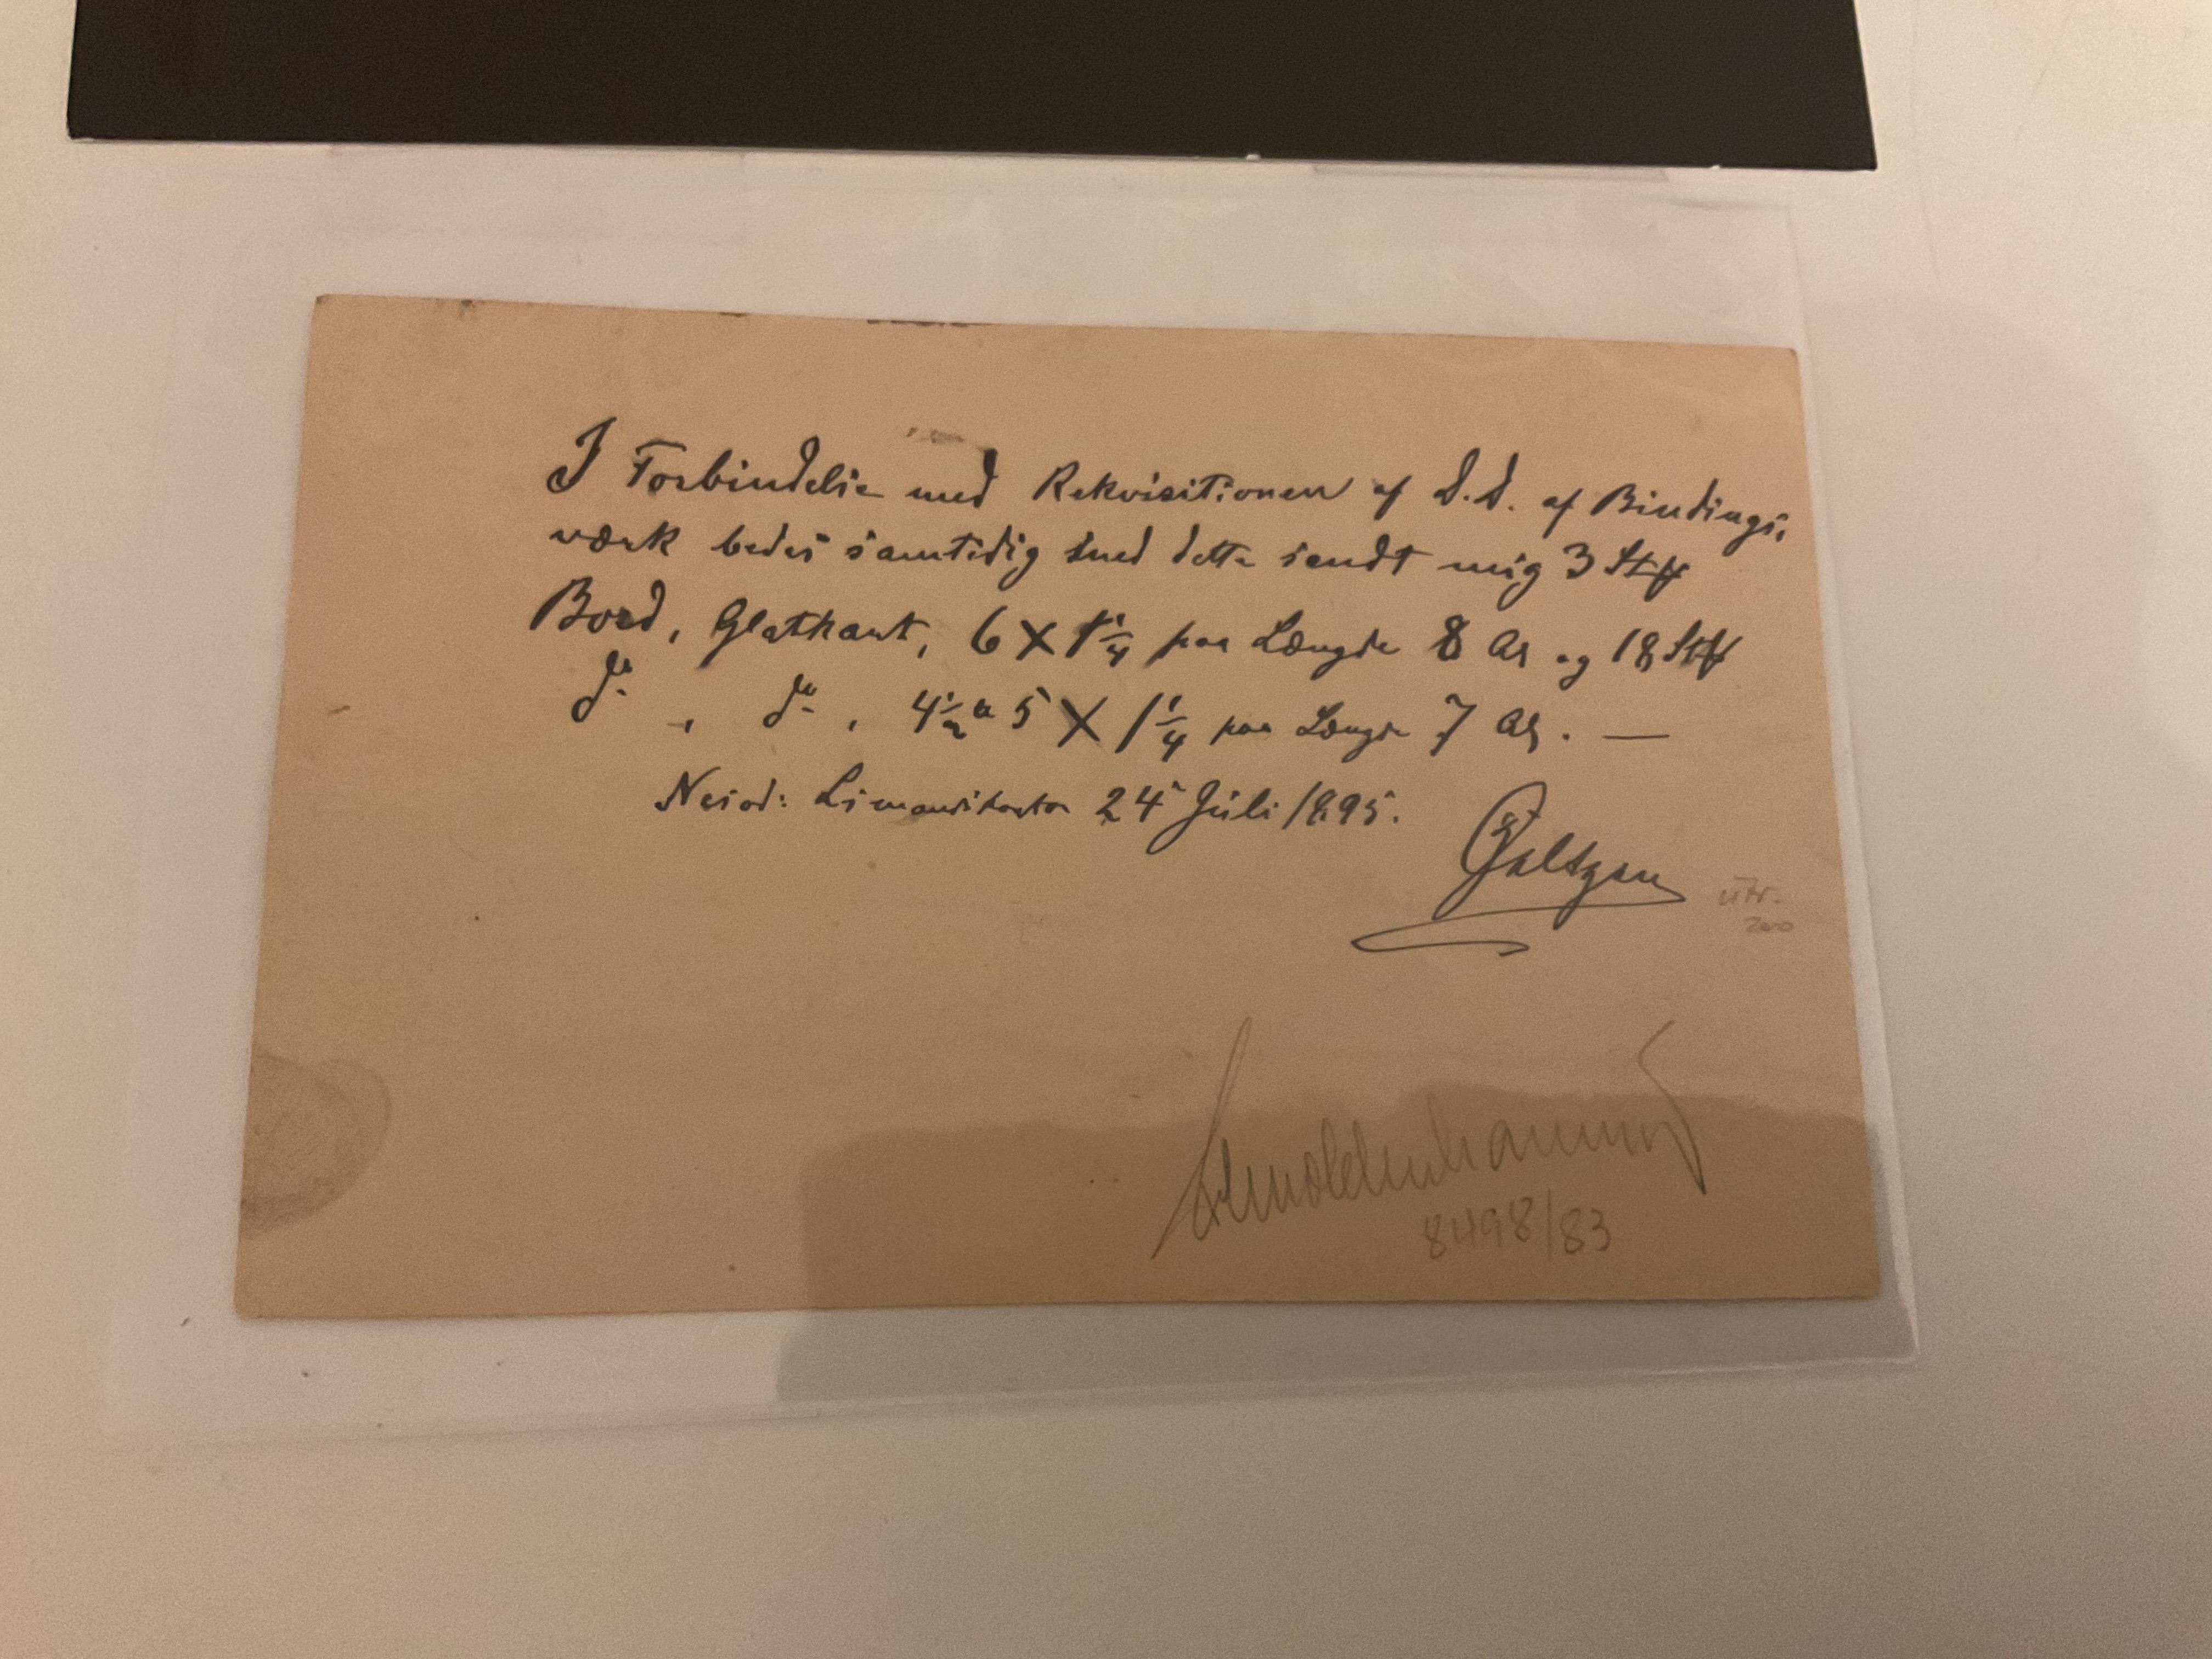 I Forbindelse med Rekvisitionen af d.d. af Bindings,
værk bedes samtidig med dette sendt mig 3 Stk
Bord, Glatkant, 6 X 1 1/4 paa Længde 8 Al og 18 Stk
do , do , 4 1/2 a 5 X 1 1/4 paa Længde 7 Al. —
24 Juli 1895.
8498/83